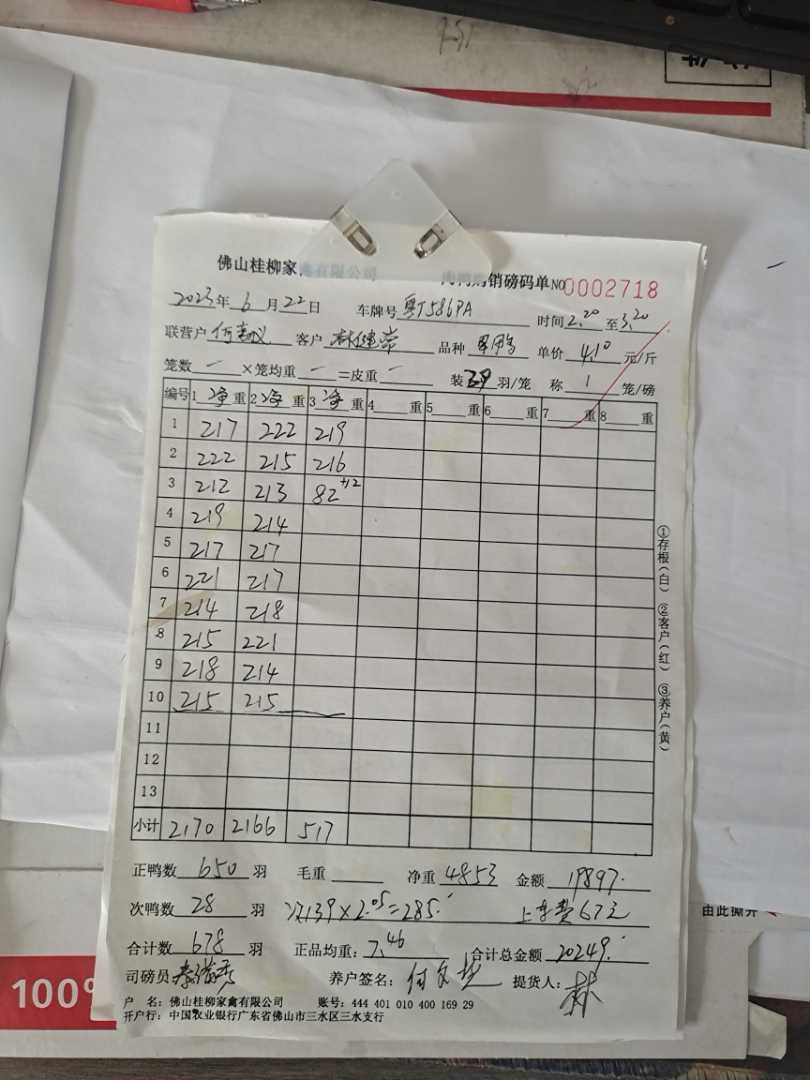 佛山桂柳家禽有限公司 肉鸭购销磅码单 NO 0002718
2023年 6 月 22 日 车牌号 粤J586PA 时间 2.20 至 3.20
联营户 客户 品种 单价 4.10 元/斤
笼数 — ×笼均重 — =皮重 — 装 29 羽/笼 称 1 笼/磅
编号 1 净 重 2 净 重 3 净 重 4 重 5 重 6 重 7 重 8 重
1 217 222 219
2 222 215 216
3 212 213 82 +12
4 219 214
5 217 217
6 221 217
7 214 218
8 215 221
9 218 214
10 215 215
11
12
13
小计 2170 2166 517
正鸭数 650 羽 毛重 净重 4853 金额 19897.
次鸭数 28 羽 次139×2.05=285. 上车费67元
合计数 678 羽 正品均重: 7.46 合计总金额 20249.
司磅员 养户签名: 提货人: 林
户 名: 佛山桂柳家禽有限公司 账号: 444 401 010 400 169 29
开户行: 中国农业银行广东省佛山市三水区三水支行
①存根(白) ②客户(红) ③养户(黄)
由此撕开
100%